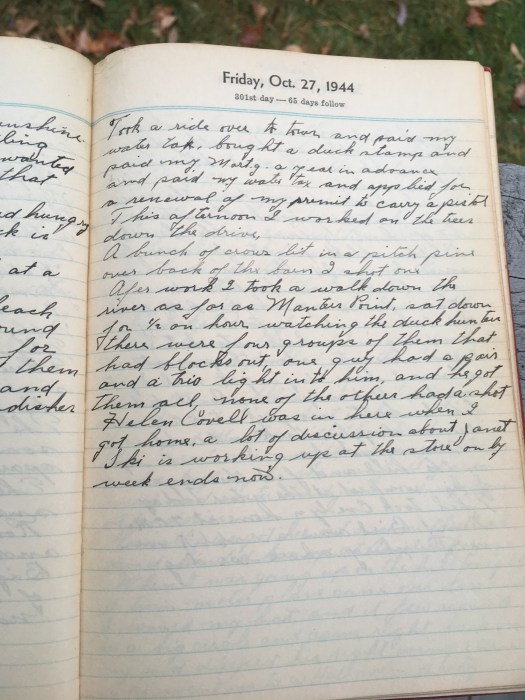 Friday, Oct. 27, 1944
301st day — 65 days follow
Took a ride over to town and paid my
water tax, bought a duck stamp and
paid my Mortg. a year in advance
and paid my water tax and applied for
a renewal of my permit to carry a pistol
This afternoon I worked on the trees
down the drive,
A bunch of crows lit in a pitch pine
over back of the barn I shot one
After work I took a walk down the
river as far as Manter Point, sat down
for ½ an hour watching the duck hunters
there were four groups of them that
had blocks out, one guy had a pair
and a trio light in to him, and he got
them all, none of the others had a shot
Helen Covell was in here when I
got home, a lot of discussion about Janet
Ski is working up at the store only
week ends now.
unshine
ling
wanted
that
nd hungry
ck is
at a
each
ound
for
them
and
disher